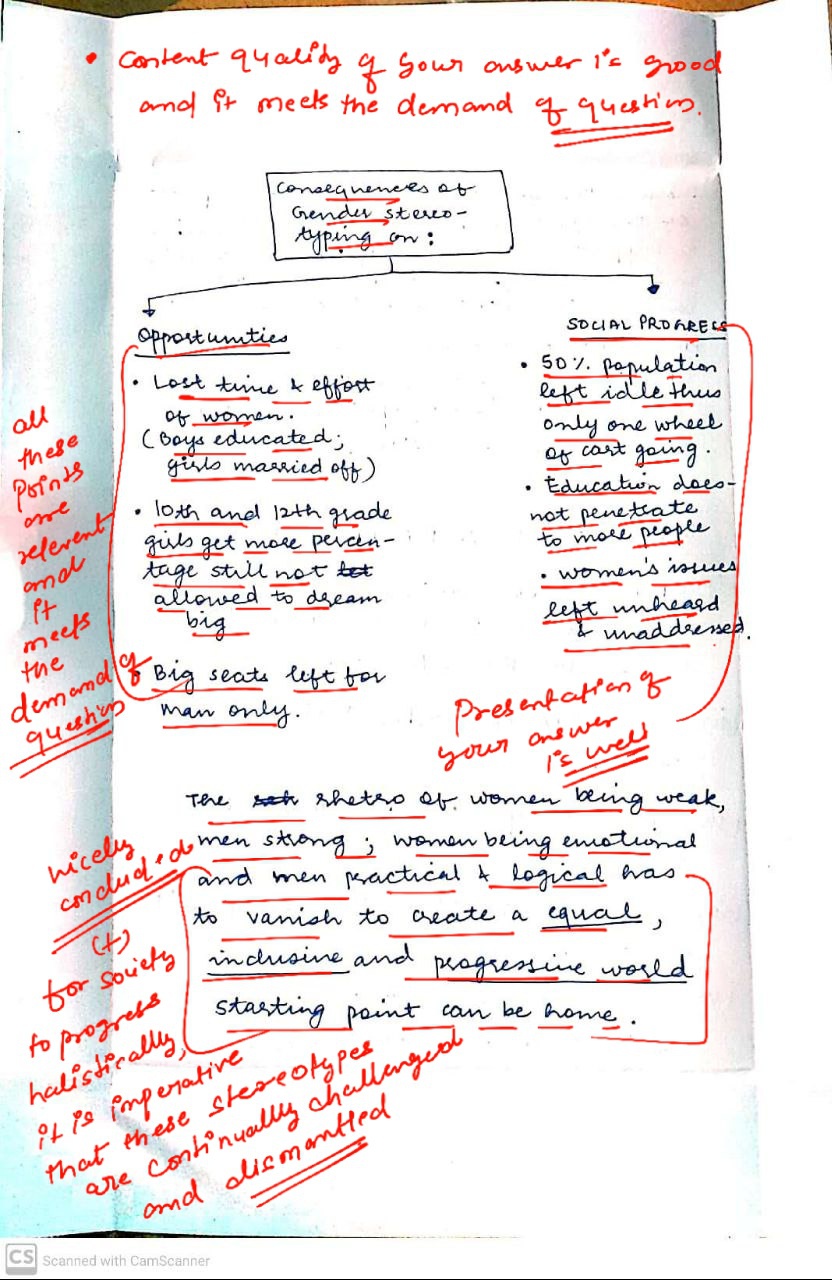 • Content quality of your answer is good
and it meets the demand of question.
Consequences of
Gender stereo-
typing on :
Opportunities
• Lost time & effort
of women.
(Boys educated;
girls married off)
• 10th and 12th grade
girls get more percen-
tage still not let
allowed to dream
big
• Big seats left for
man only.
SOCIAL PROGRESS
• 50% population
left idle thus
only one wheel
of cart going.
• Education does-
not penetrate
to more people
• women's issues
left unheard
& unaddressed.
all
these
points
are
relevent
and
it
meets
the
demand of
question
Presentation of
your answer
is well
The rhetro of women being weak,
men strong ; women being emotional
and men practical & logical has
to vanish to create a equal,
inclusine and progressive world
starting point can be home.
nicely
concluded
(+)
for society
to progress
halistically,
it is imperative
that these stereotypes
are continually challenged
and dismantled
CS Scanned with CamScanner